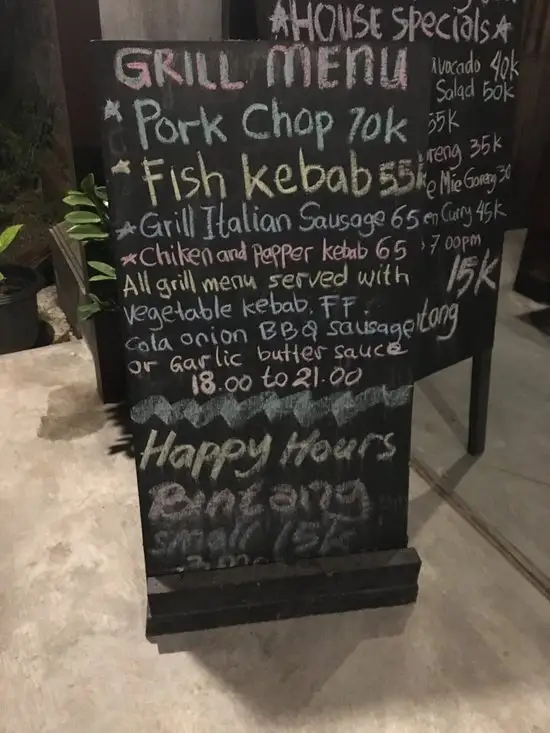 GRILL MENU
* Pork Chop 70k
* Fish kebab 55k
* Grill Italian Sausage 65
* Chiken and Pepper kebab 65
All grill menu served with
vegetable kebab. FF.
Cola onion BBQ sausage
or Garlic butter sauce
18.00 to 21.00
Happy Hours
Bintang
small 15k
*HOUSE SPecials*
avocado 40k
Salad 50k
55k
oreng 35k
e Mie Goreng 30
en Curry 45k
7 00pm
15k
ntang